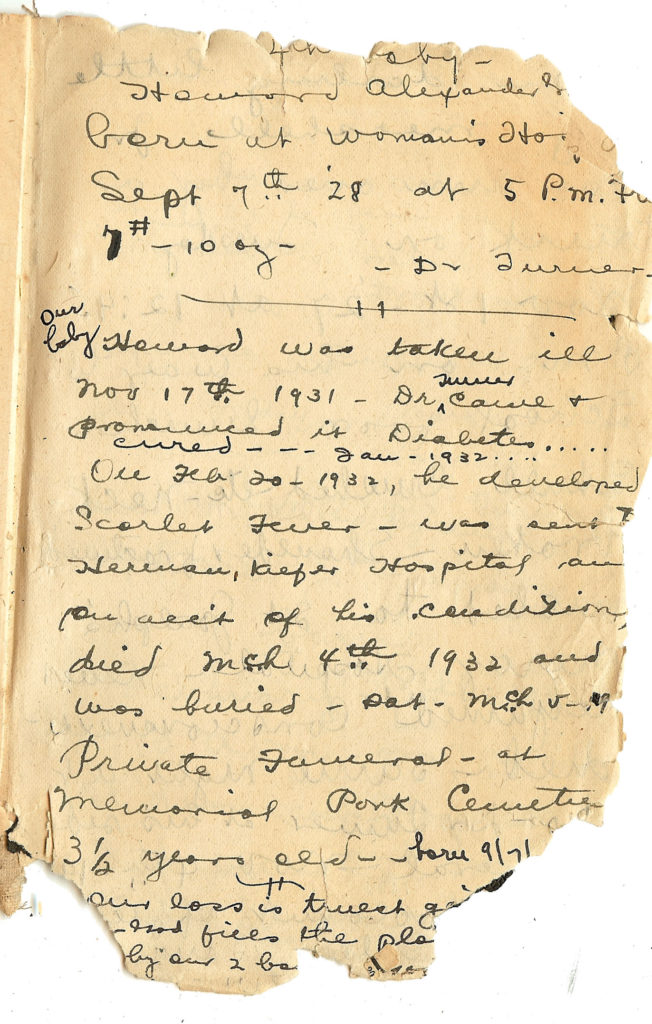 4th baby -
Howard Alexander
born at Woman's Ho
Sept 7th '28 at 5 P.m. Fr
7# - 10 oz -
- Dr Turner -
Our
baby Howard was taken ill
Nov 17th 1931 - Dr, Turner Caine +
pronounced it Diabetes......
cured - - - Jan - 1932........
On Feb 20 - 1932, he developed
Scarlet Fever - was sent
Herman, Kiefer Hospital an
on acc't of his condition,
died Mch 4th 1932 and
was buried - Sat - Mch 5 - 19
Private Funeral - at
Memorial Park Cemete
3½ years old - born 9/7/
Our loss is truest ga
- God fills the pla
by our 2 ba